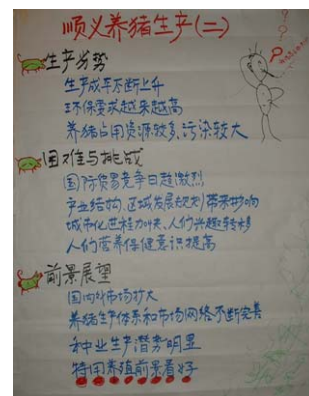 顺义养猪生产(二)
生产劣势
生产成本不断上升
环保要求越来越高
养猪占用资源较多,污染较大
困难与挑战
国际贸易竞争日趋激烈
产业结构、区域发展规划带来影响
城市化进程加快、人们兴趣转移
人们营养保健意识提高
前景展望
国内外市场扩大
养猪生产体系和市场网络不断完善
种业生产潜势明显
特用养殖前景看好